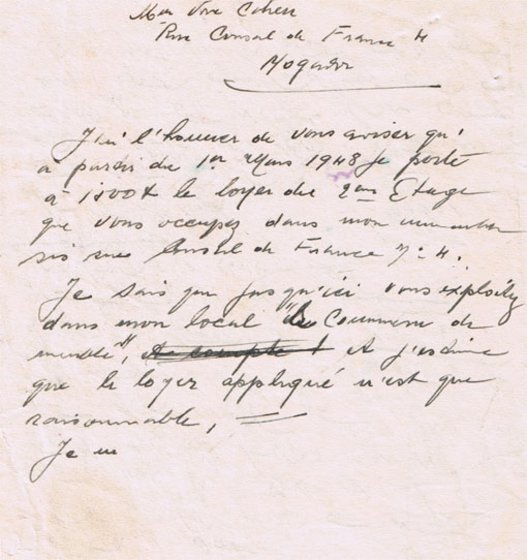 Mme Vve Cohen
Rue Consul de France 4
Mogador
J'ai l'honneur de vous aviser qu'
à partir du 1er Mars 1948 je porte
à le loyer du 2em Etage
que vous occupez dans mon immeuble
sis rue Consul de France n° 4.
Je sais que jusqu'ici vous exploitez
dans mon local "le Commerce de
meuble", et j'estime
que le loyer appliqué n'est que
raisonnable,
Je